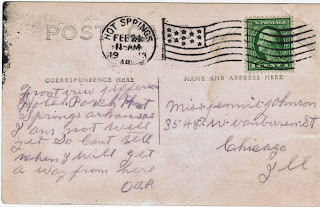 POST
HOT SPRINGS
FEB 24
11-AM
19
ARK
CORRESPONDENCE HERE
NAME AND ADDRESS HERE
Front view
Hotel Hot
Springs arkansas
I am not well
yet So Cant tell
when I will get
a way from here
Miss Jennie Johnson
3548. W. vanburen. St
Chicago
Ill